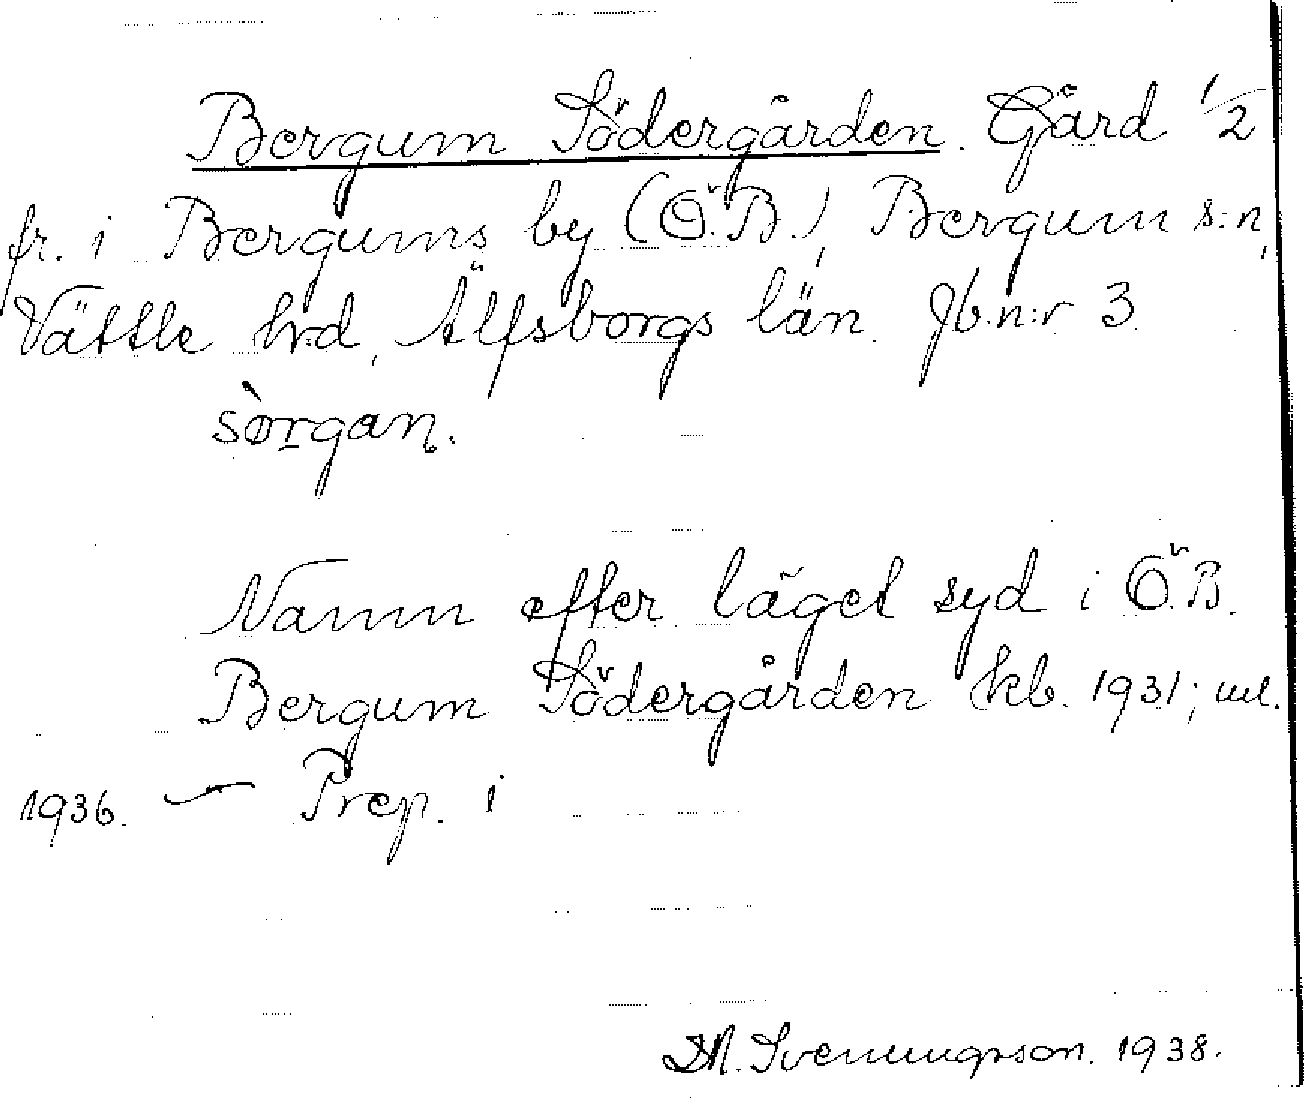 Bergum Södergården. Gård 1/2
fr. i Bergums by (Ö.B.), Bergum s:n,
Vättle hrd, Älfsborgs län. Jb.n:r 3.
sòrgan.
Namn efter läget syd i Ö.B.
Bergum Södergården kb. 1931; ml.
1936. — Prep. i
M. Svenungsson. 1938.